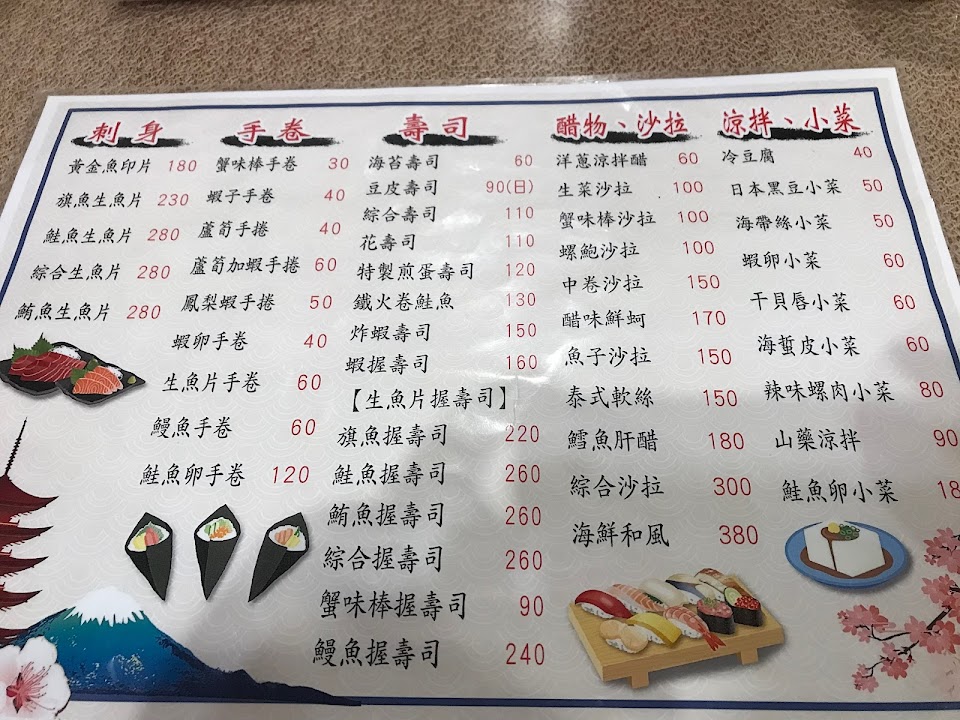 刺身
黃金魚印片 180
旗魚生魚片 230
鮭魚生魚片 280
綜合生魚片 280
鮪魚生魚片 280
手卷
蟹味棒手卷 30
蝦子手卷 40
蘆筍手捲 40
蘆筍加蝦手捲 60
鳳梨蝦手捲 50
蝦卵手卷 40
生魚片手卷 60
鰻魚手卷 60
鮭魚卵手卷 120
壽司
海苔壽司 60
豆皮壽司 90(日)
綜合壽司 110
花壽司 110
特製煎蛋壽司 120
鐵火卷鮭魚 130
炸蝦壽司 150
蝦握壽司 160
【生魚片握壽司】
旗魚握壽司 220
鮭魚握壽司 260
鮪魚握壽司 260
綜合握壽司 260
蟹味棒握壽司 90
鰻魚握壽司 240
醋物、沙拉
洋蔥涼拌醋 60
生菜沙拉 100
蟹味棒沙拉 100
螺鮑沙拉 100
中卷沙拉 150
醋味鮮蚵 170
魚子沙拉 150
泰式軟絲 150
鱈魚肝醋 180
綜合沙拉 300
海鮮和風 380
涼拌、小菜
冷豆腐 40
日本黑豆小菜 50
海帶絲小菜 50
蝦卵小菜 60
干貝唇小菜 60
海蜇皮小菜 60
辣味螺肉小菜 80
山藥涼拌 90
鮭魚卵小菜